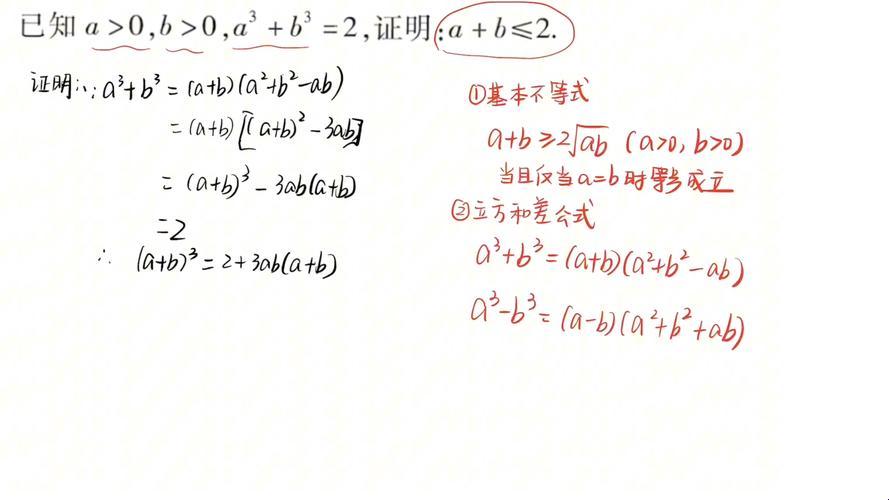 已知 a>0,b>0,a³+b³=2,证明:a+b≤2.
证明:∵a³+b³=(a+b)(a²+b²-ab)
=(a+b)[(a+b)²-3ab]
=(a+b)³-3ab(a+b)
=2
∴ (a+b)³=2+3ab(a+b)
①基本不等式
a+b≥2√ab (a>0,b>0)
当且仅当a=b时等号成立
②立方和差公式
a³+b³=(a+b)(a²+b²-ab)
a³-b³=(a-b)(a²+b²+ab)